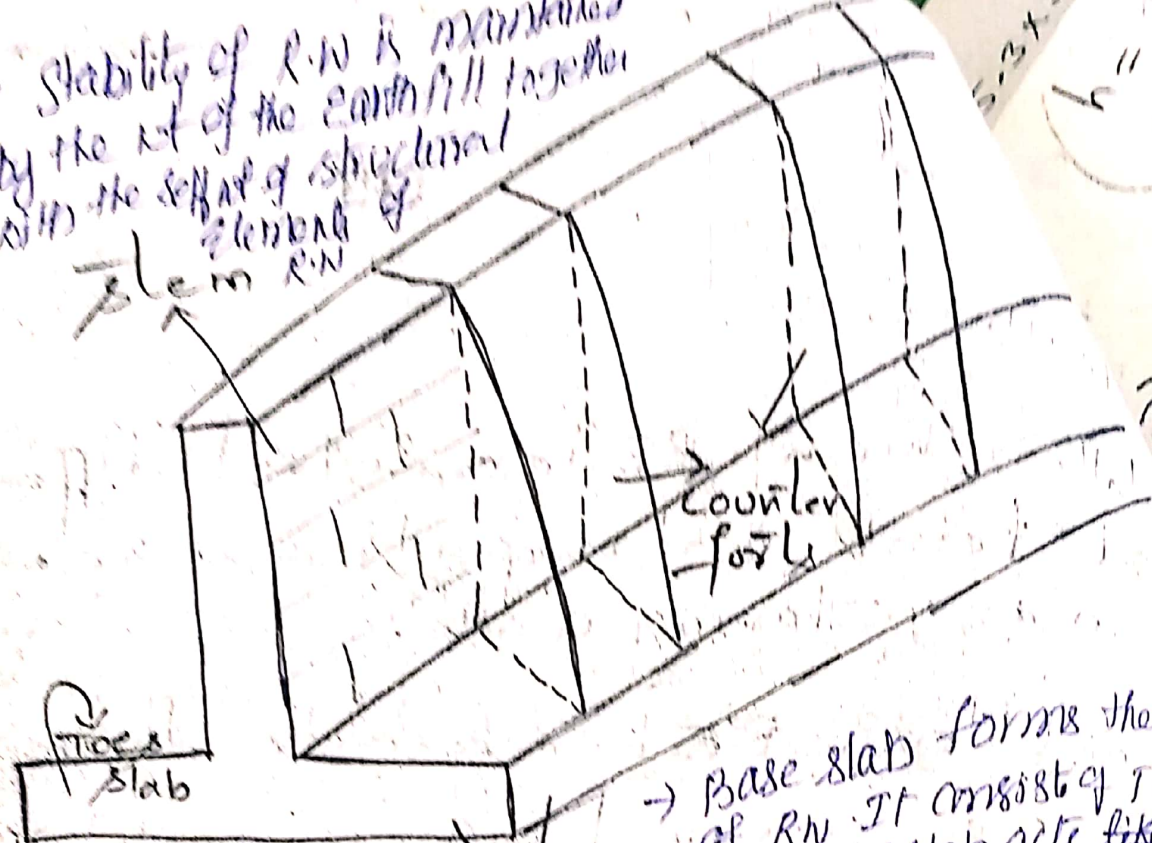 Stability of R.W is maintained
by the wt of the Earth fill together
with the self wt of structural
elements of
R.W
stem
5.3+
h"
Counter
forts
Toe
slab
→ Base slab forms the
of R.W. It consist of T
slab acts lik